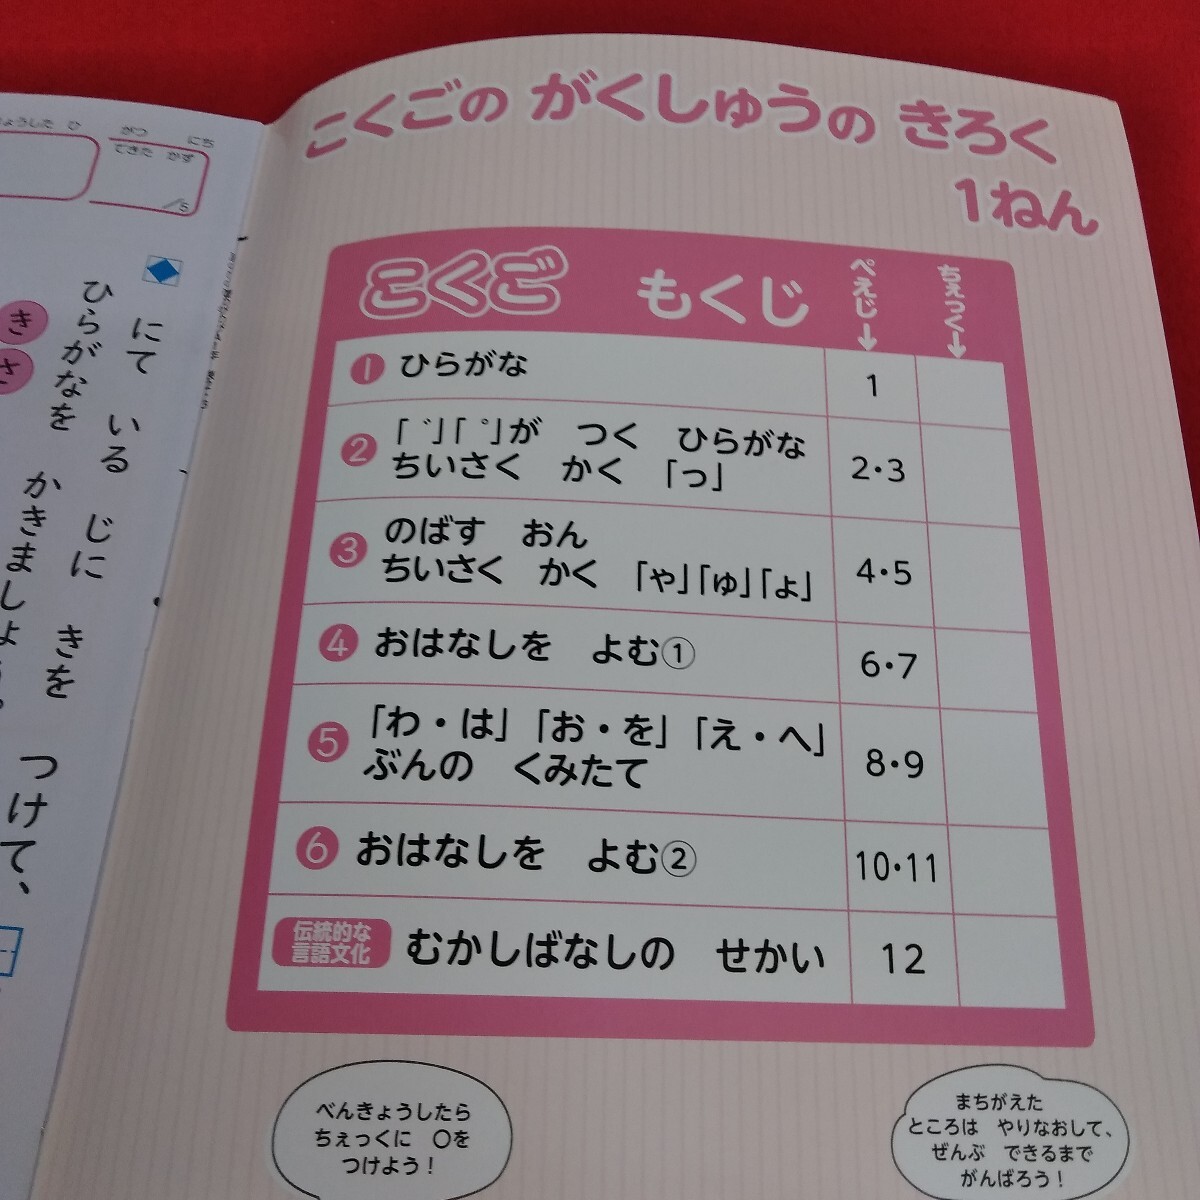 こくごの がくしゅうの きろく
1ねん
こくご もくじ
ぺえじ→
ちぇっく→
1 ひらがな
1
2 「゛」「゜」が つく ひらがな
ちいさく かく 「っ」
2・3
3 のばす おん
ちいさく かく 「ゃ」「ゅ」「ょ」
4・5
4 おはなしを よむ①
6・7
5 「わ・は」「お・を」「え・へ」
ぶんの くみたて
8・9
6 おはなしを よむ②
10・11
伝統的な
言語文化
むかしばなしの せかい
12
べんきょうしたら
ちぇっくに ○を
つけよう！
まちがえた
ところは やりなおして、
ぜんぶ できるまで
がんばろう！
ょうした ひ
がつ
にち
できた かず
/5
にて いる じに きを つけて、
ひらがなを かきましょう。
き
さ